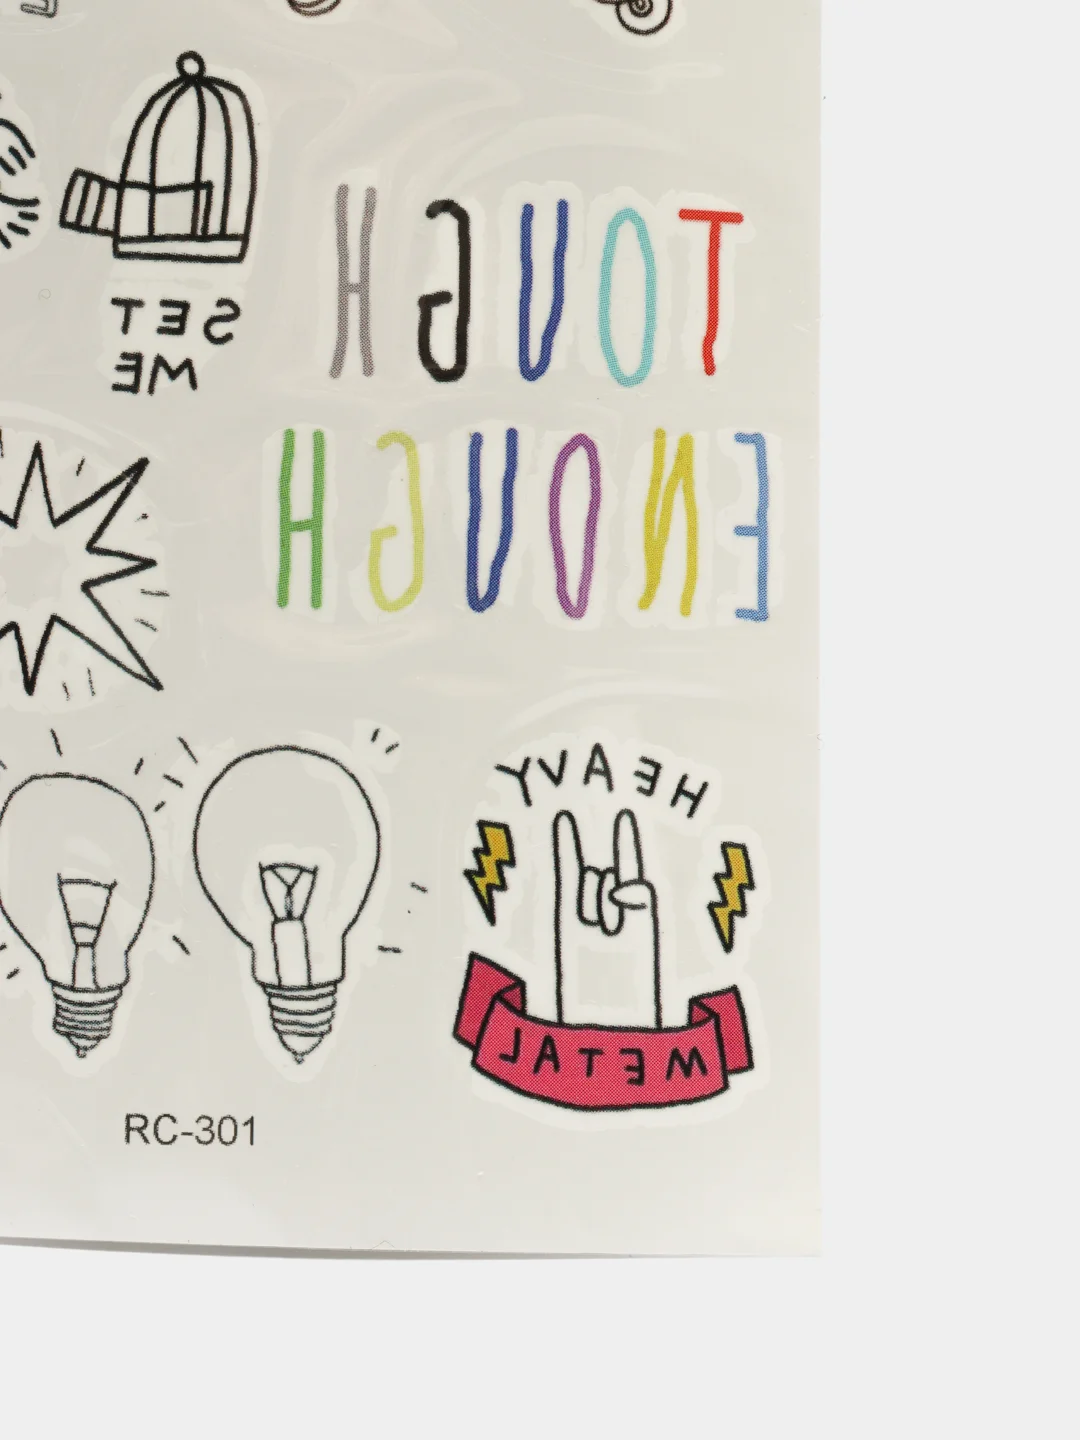 SET
ME
TOUGH
ENOUGH
HEAVY
METAL
RC-301